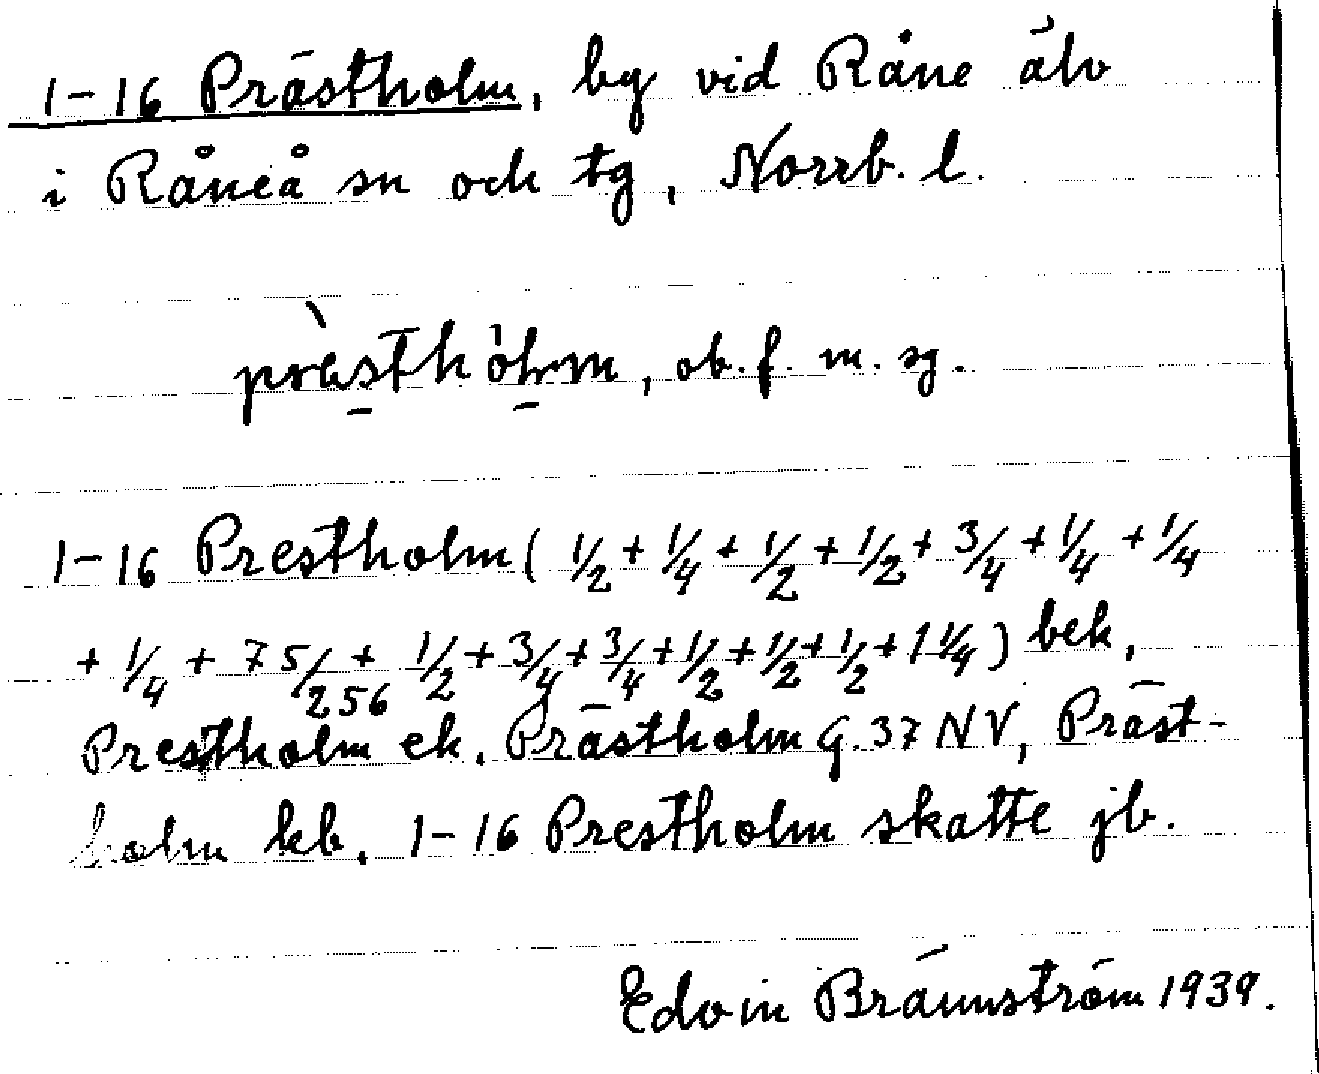 1-16 Prästholm, by vid Råne älv
i Råneå sn och tg, Norrb. l.
prästhòlm, ob. f. m. sg.
1-16 Prestholm ( 1/2 + 1/4 + 1/2 + 1/2 + 3/4 + 1/4 + 1/4
+ 1/4 + 75/256 + 1/2 + 3/4 + 3/4 + 1/2 + 1/2 + 1/2 + 1 1/4 ) bek,
Prestholm ek. Prästholm G. 37 NV, Präst-
holm kb. 1-16 Prestholm skatte jb.
Edvin Brännström 1939.